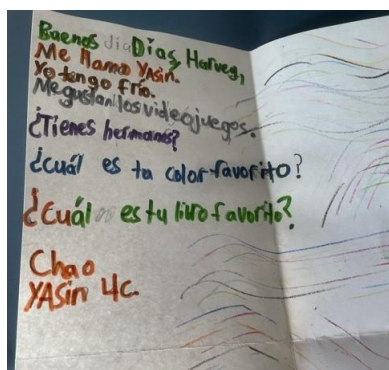 Buenos dia Días, Harvey,
Me llamo YASin.
Yo tengo frío.
Me gustan los videojuegos.
¿Tienes hermanos?
¿cuál es tu color favorito?
¿cuál es tu libro favorito?
Chao
YASin 4c.